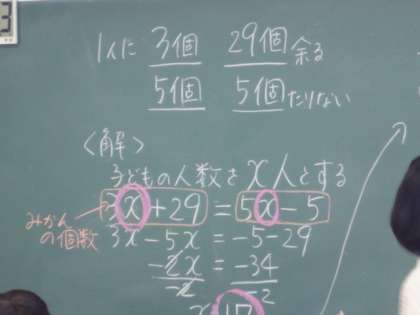 1人に 3個 29個余る
5個 5個たりない
<解>
子どもの人数を x人とする
3x+29=5x-5
みかんの個数
3x-5x=-5-29
-2x=-34
-2 -2
x 17